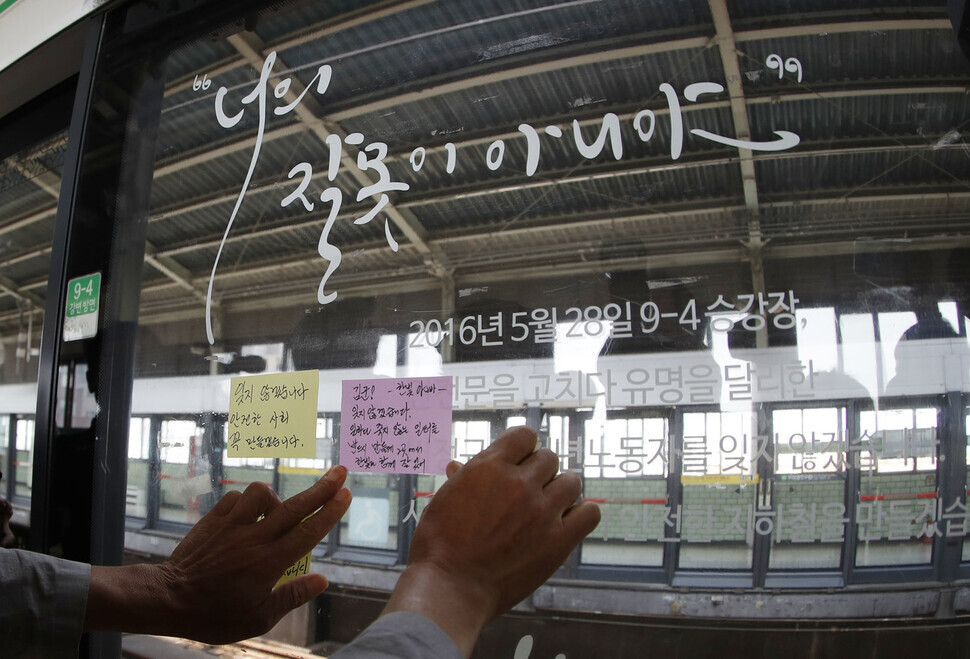 “너의
잘못이 아니야”
9-4
강변 방면
2016년 5월 28일 9-4 승강장,
문을 고치다 유명을 달리한
노동자를 잊지 않겠습니다.
지하철을 만들겠습
잊지 않겠습니다
안전한 사회
꼭 만들겠습니다.
김군! - 한빛 아빠 -
잊지 않겠습니다.
일하다 죽지 않는 일터를